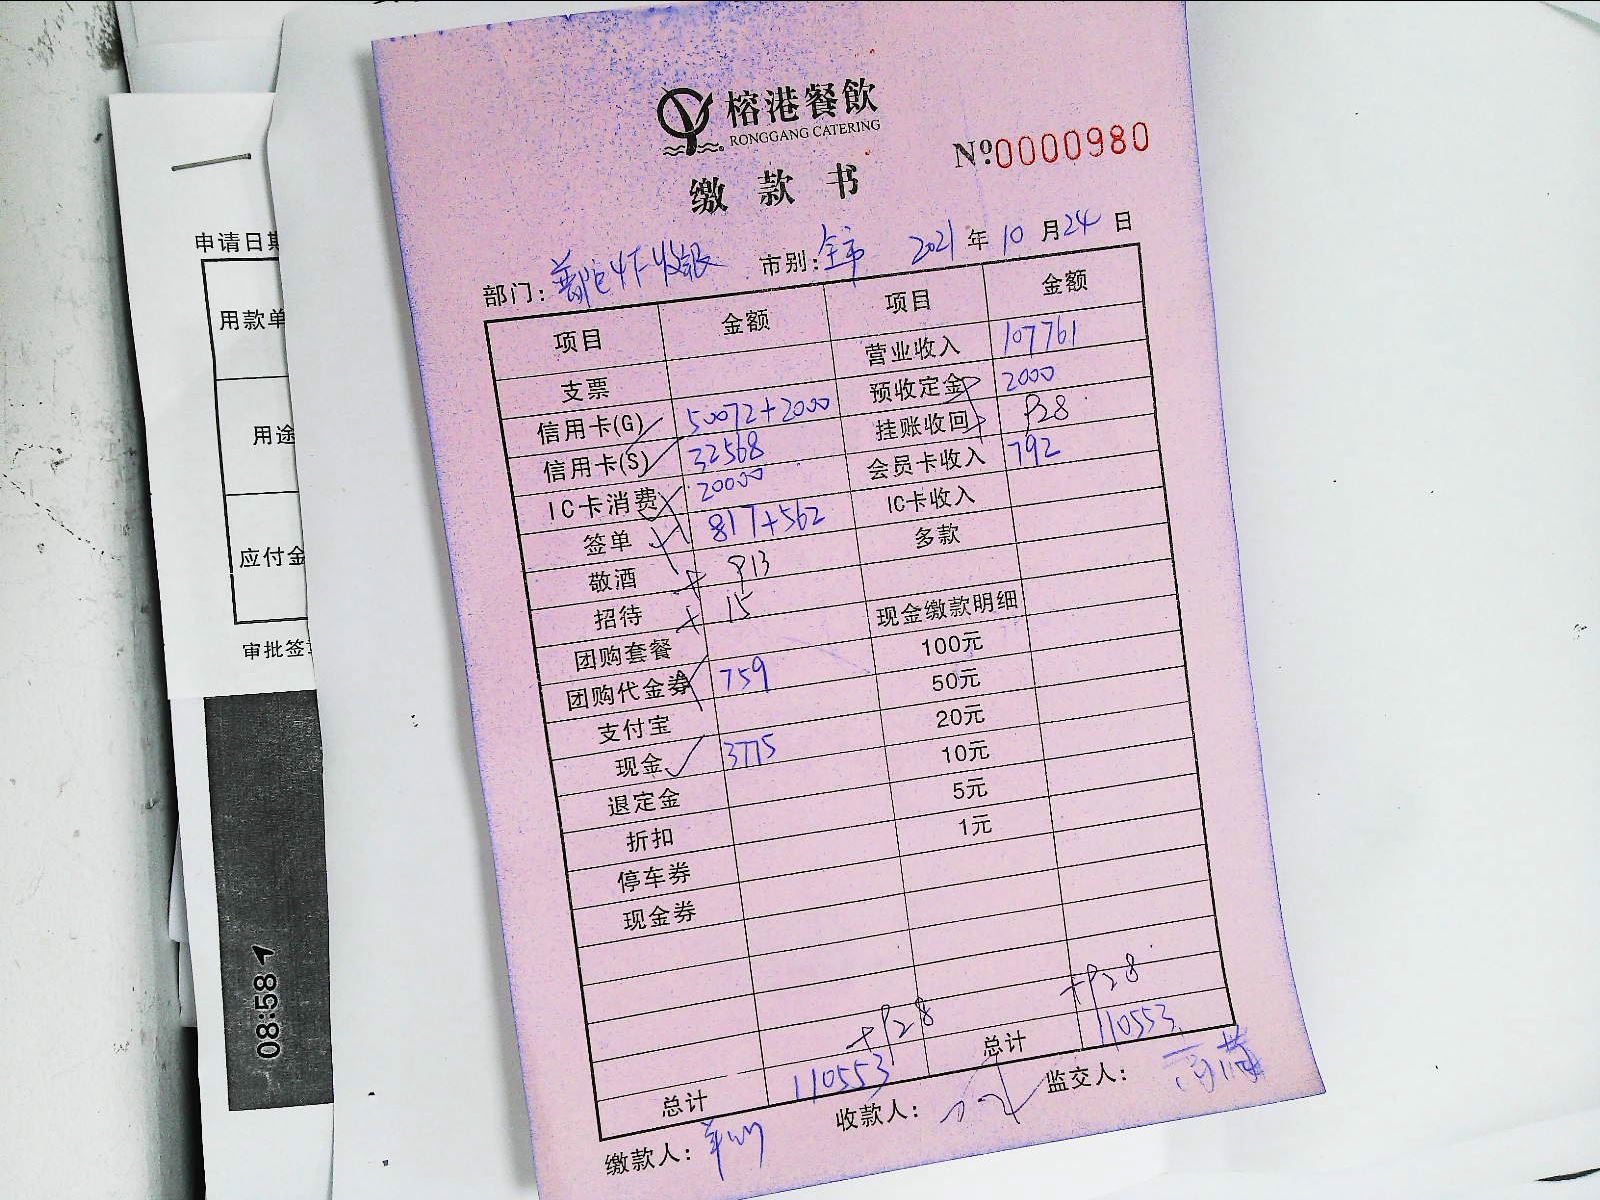 榕港餐飲
RONGGANG CATERING
缴款书
Nº0000980
部门: 市别:全市 2021年10月24日
项目 金额 项目 金额
支票 营业收入 107761
信用卡(G) 50072+2000 预收定金 2000
信用卡(S) 32568 挂账收回 P28
IC卡消费 20000 会员卡收入 792
签单 817+562 IC卡收入
敬酒 P13 多款
招待 15
团购套餐 现金缴款明细
团购代金券 759 100元
支付宝 50元
现金 3775 20元
退定金 10元
折扣 5元
停车券 1元
现金券
+P28 +P28
总计 110553 总计 110553
缴款人: 收款人: 监交人:
申请日期
用款单
用途
应付金
审批签
08:58